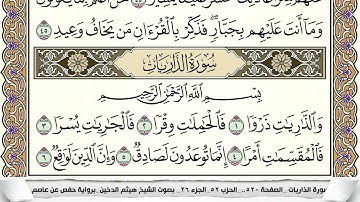 وَمَآ أَنتَ عَلَيۡهِم بِجَبَّارٖۖ فَذَكِّرۡ بِٱلۡقُرۡءَانِ مَن يَخَافُ وَعِيدِ ٤٥
سُورَةُ الذَّارِيَاتِ
بِسۡمِ ٱللَّهِ ٱلرَّحۡمَٰنِ ٱلرَّحِيمِ
وَٱلذَّٰرِيَٰتِ ذَرۡوٗا ١ فَٱلۡحَٰمِلَٰتِ وِقۡرٗا ٢ فَٱلۡجَٰرِيَٰتِ يُسۡرٗا ٣
فَٱلۡمُقَسِّمَٰتِ أَمۡرًا ٤ إِنَّمَا تُوعَدُونَ لَصَادِقٞ ٥ وَإِنَّ ٱلدِّينَ لَوَٰقِعٞ ٦
سورة الذاريات - الصفحة ٥٢٠ - الحزب ٥٢ الجزء ٢٦ - بصوت الشيخ هيثم الدخين - برواية حفص عن عاصم